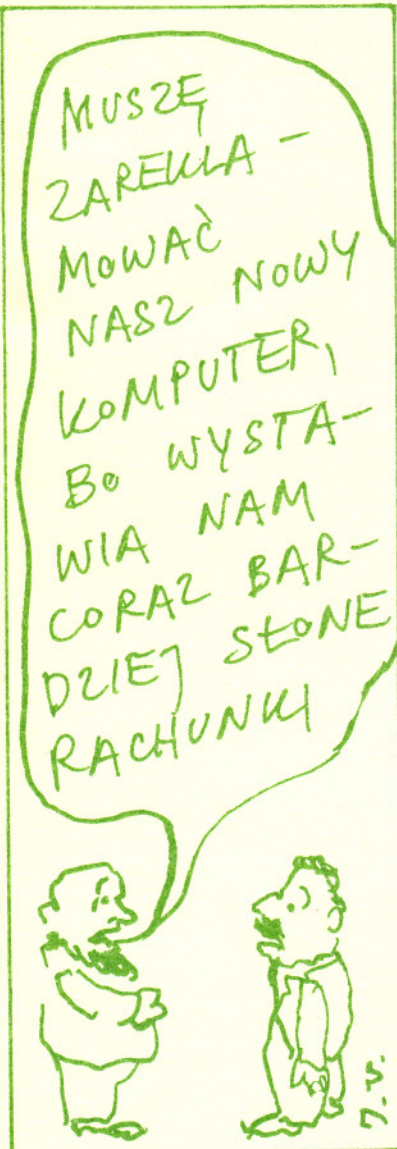 MUSZĘ
ZAREKLA-
MOWAĆ
NASZ NOWY
KOMPUTER,
BO WYSTA-
WIA NAM
CORAZ BAR-
DZIEJ SŁONE
RACHUNKI
J.S.